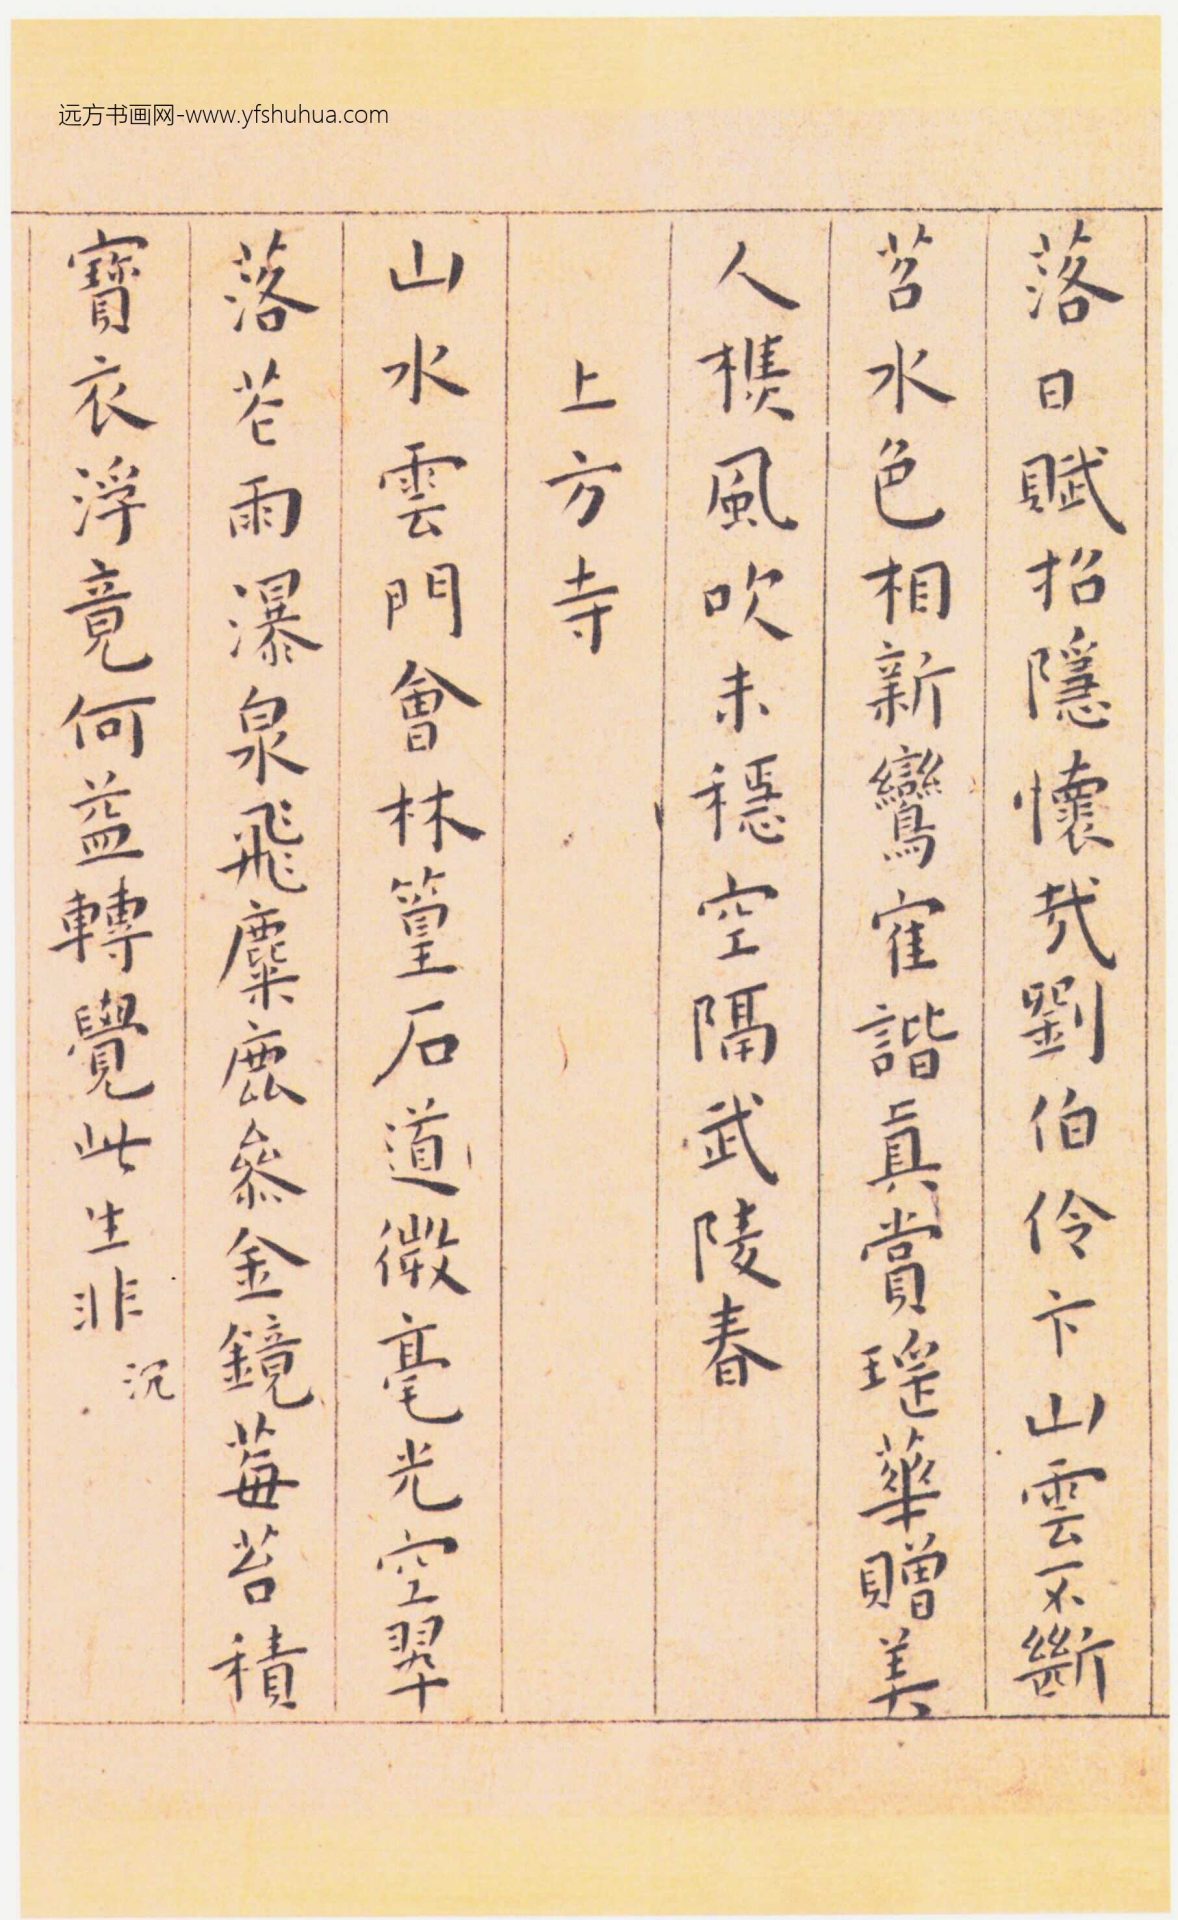 远方书画网-www.yfshuhua.com
落日賦招隱懷哉劉伯伶卞山雲不斷
苕水色相新鸞寉諧真賞瑤華贈美
人樵風吹未穩空隔武陵春
上方寺
山水雲門會林篁石道微毫光空翠
落花雨瀑泉飛麋鹿叅金鏡莓苔積
寳衣浮竟何益轉覺此生非
沉